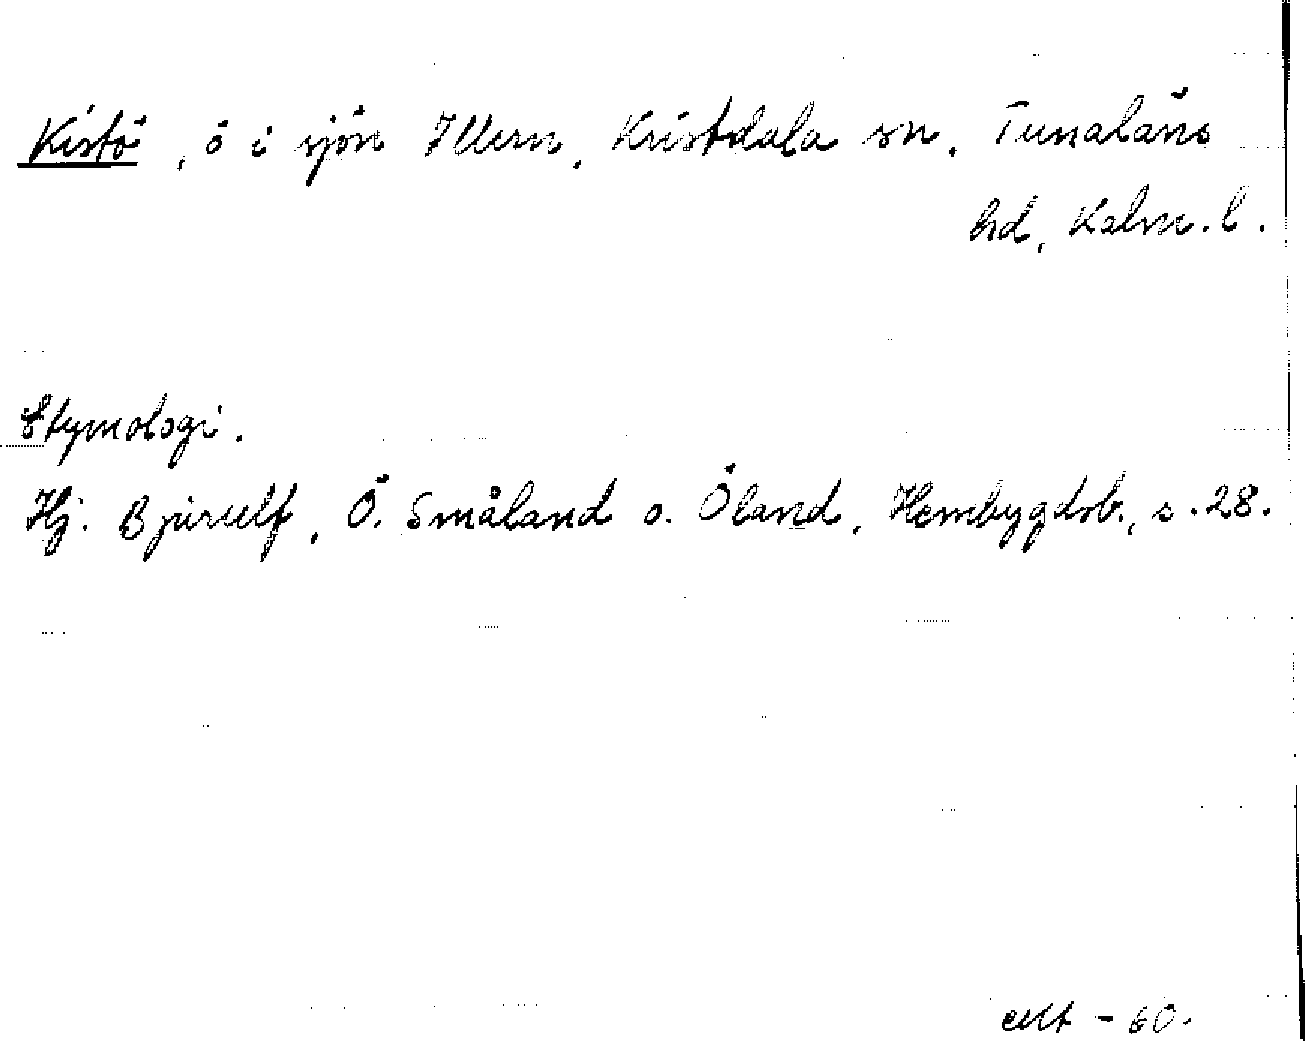 Kistö, ö i sjön Illern, Kristdala sn, Tunaläns
hd, Kalm. l.
Etymologi.
Hj. Bjurulf, Ö. Småland o. Öland, Hembygdsb., s. 28.
- 60.